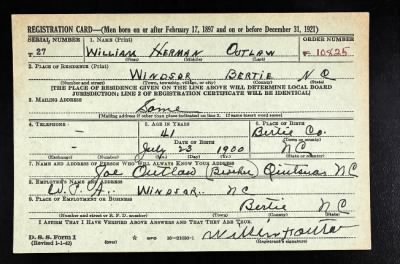 REGISTRATION CARD—(Men born on or after February 17, 1897 and on or before December 31, 1921)
SERIAL NUMBER 1. NAME (Print) ORDER NUMBER
T 27 WILLIAM HERMAN OUTLAW 10825
(First) (Middle) (Last)
2. PLACE OF RESIDENCE (Print)
WINDSOR BERTIE N C
(Number and street) (Town, township, village, or city) (County) (State)
[THE PLACE OF RESIDENCE GIVEN ON THE LINE ABOVE WILL DETERMINE LOCAL BOARD
JURISDICTION; LINE 2 OF REGISTRATION CERTIFICATE WILL BE IDENTICAL]
3. MAILING ADDRESS
Same
[Mailing address if other than place indicated on line 2. If same insert word same]
4. TELEPHONE 5. AGE IN YEARS 6. PLACE OF BIRTH
- 41 Bertie Co.
DATE OF BIRTH (Town or county)
- July 23 1900 NC
(Mo.) (Day) (Yr.) (State or country)
7. NAME AND ADDRESS OF PERSON WHO WILL ALWAYS KNOW YOUR ADDRESS
Joe Outlaw NC
8. EMPLOYER'S NAME AND ADDRESS
W.P.A. WINDSOR. NC
9. PLACE OF EMPLOYMENT OR BUSINESS
Bertie NC
(Number and street or R. F. D. number) (Town) (County) (State)
I AFFIRM THAT I HAVE VERIFIED ABOVE ANSWERS AND THAT THEY ARE TRUE.
D. S. S. Form 1
(Revised 1-1-42) GPO 16-21630-1
(Registrant's signature)